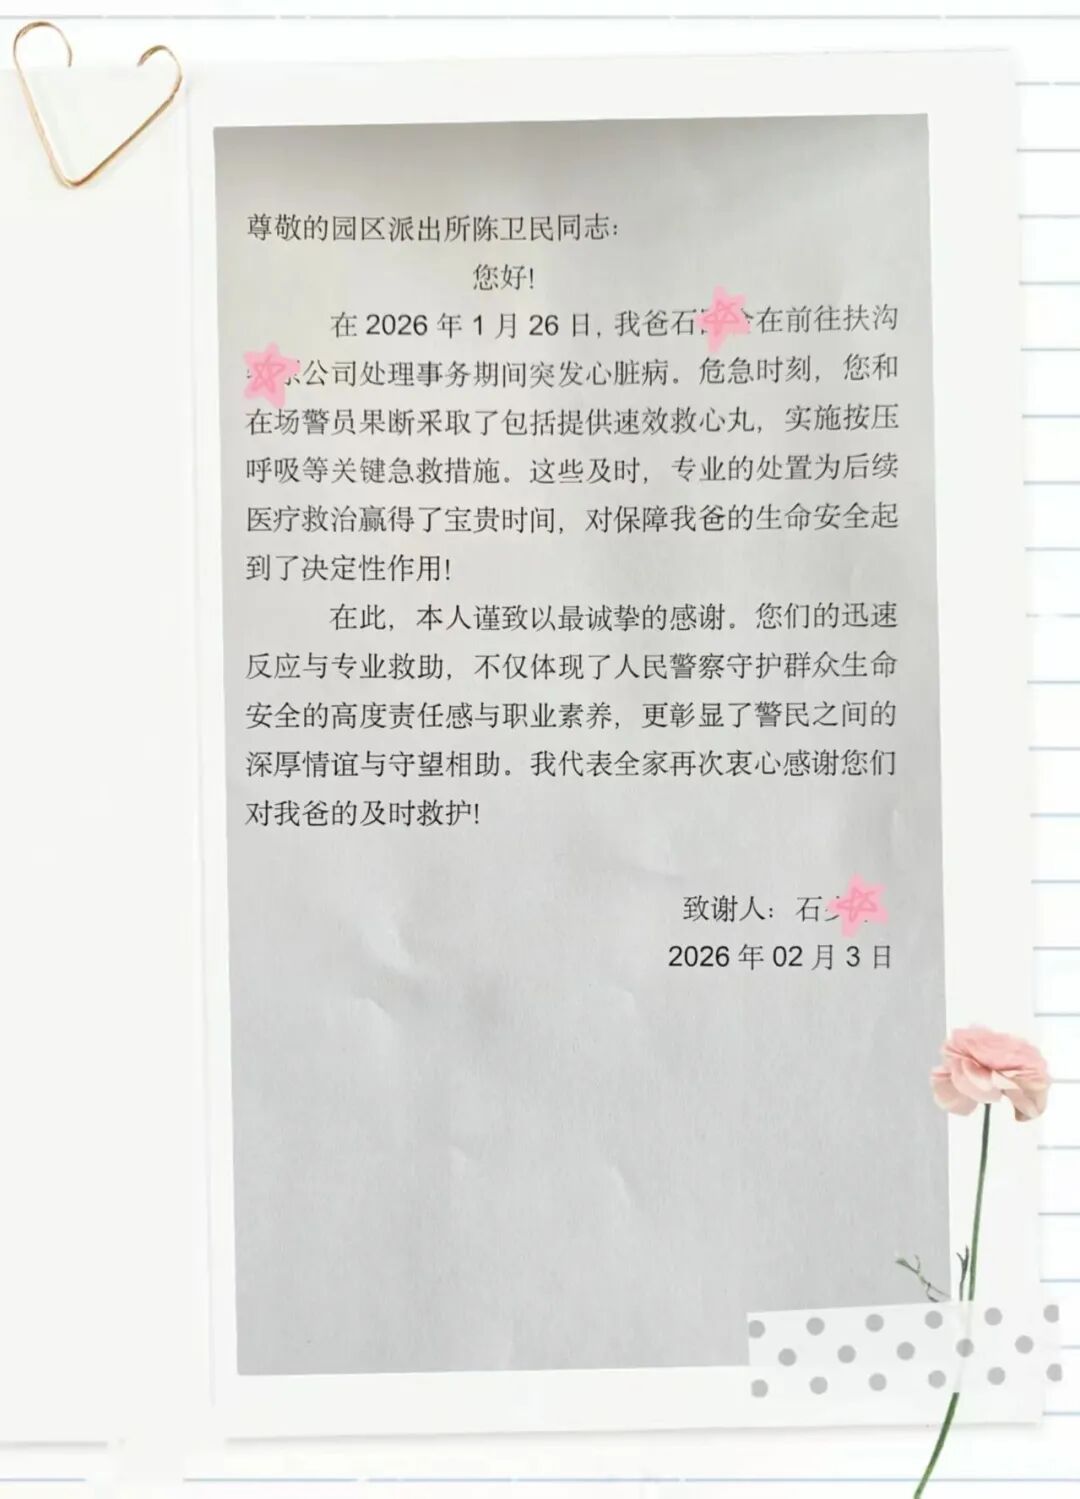 尊敬的园区派出所陈卫民同志:
您好!
在 2026 年 1 月 26 日, 我爸石 在前往扶沟
公司处理事务期间突发心脏病。危急时刻, 您和
在场警员果断采取了包括提供速效救心丸, 实施按压
呼吸等关键急救措施。这些及时, 专业的处置为后续
医疗救治赢得了宝贵时间, 对保障我爸的生命安全起
到了决定性作用!
在此, 本人谨致以最诚挚的感谢。您们的迅速
反应与专业救助, 不仅体现了人民警察守护群众生命
安全的高度责任感与职业素养, 更彰显了警民之间的
深厚情谊与守望相助。我代表全家再次衷心感谢您们
对我爸的及时救护!
致谢人: 石
2026 年 02 月 3 日